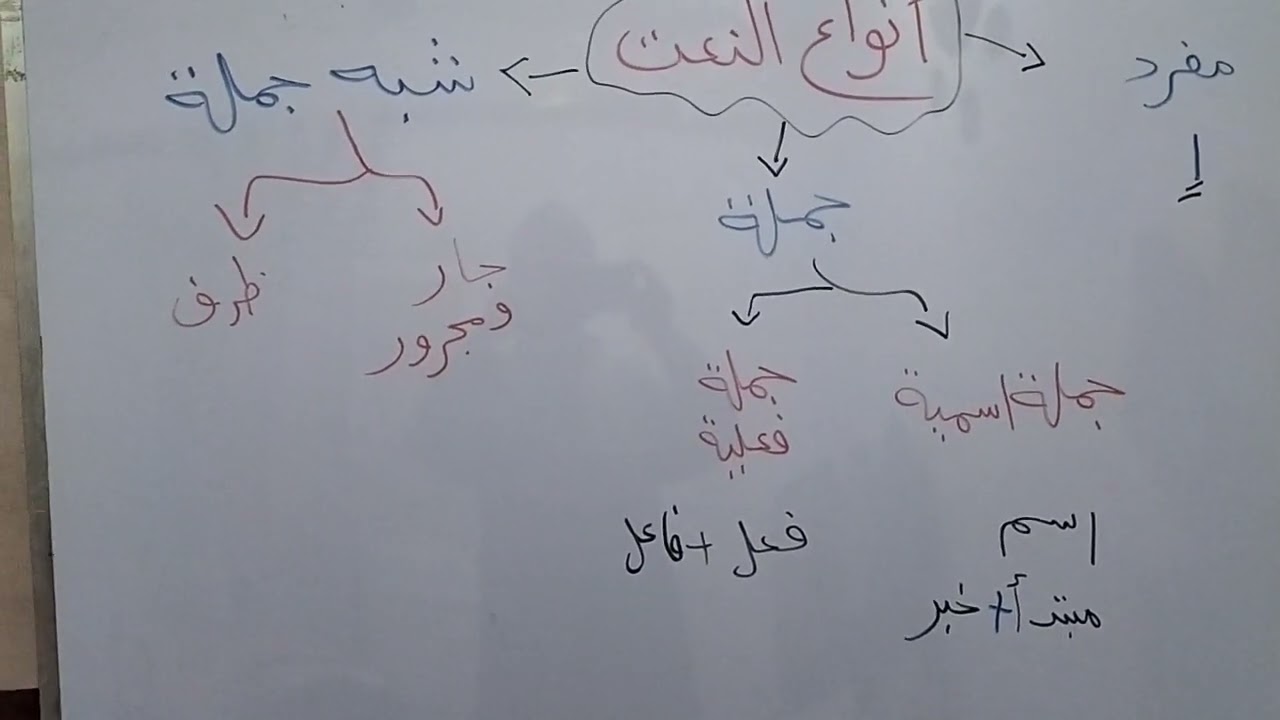 أنواع النعت
مفرد
جملة
شبه جملة
جملة اسمية
جملة
فعلية
جار
ومجرور
ظرف
اسم
مبتدأ + خبر
فعل + فاعل